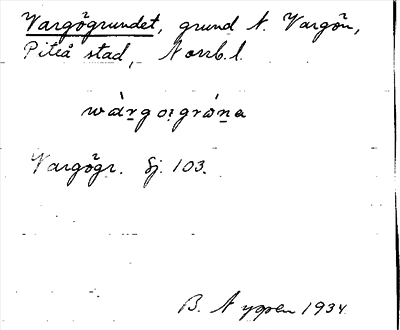 Vargögrundet, grund N. Vargön,
Piteå stad, Norrb. l.
wàrgoigrána
Vargögr. Sj. 103.
B. Nyppen 1934